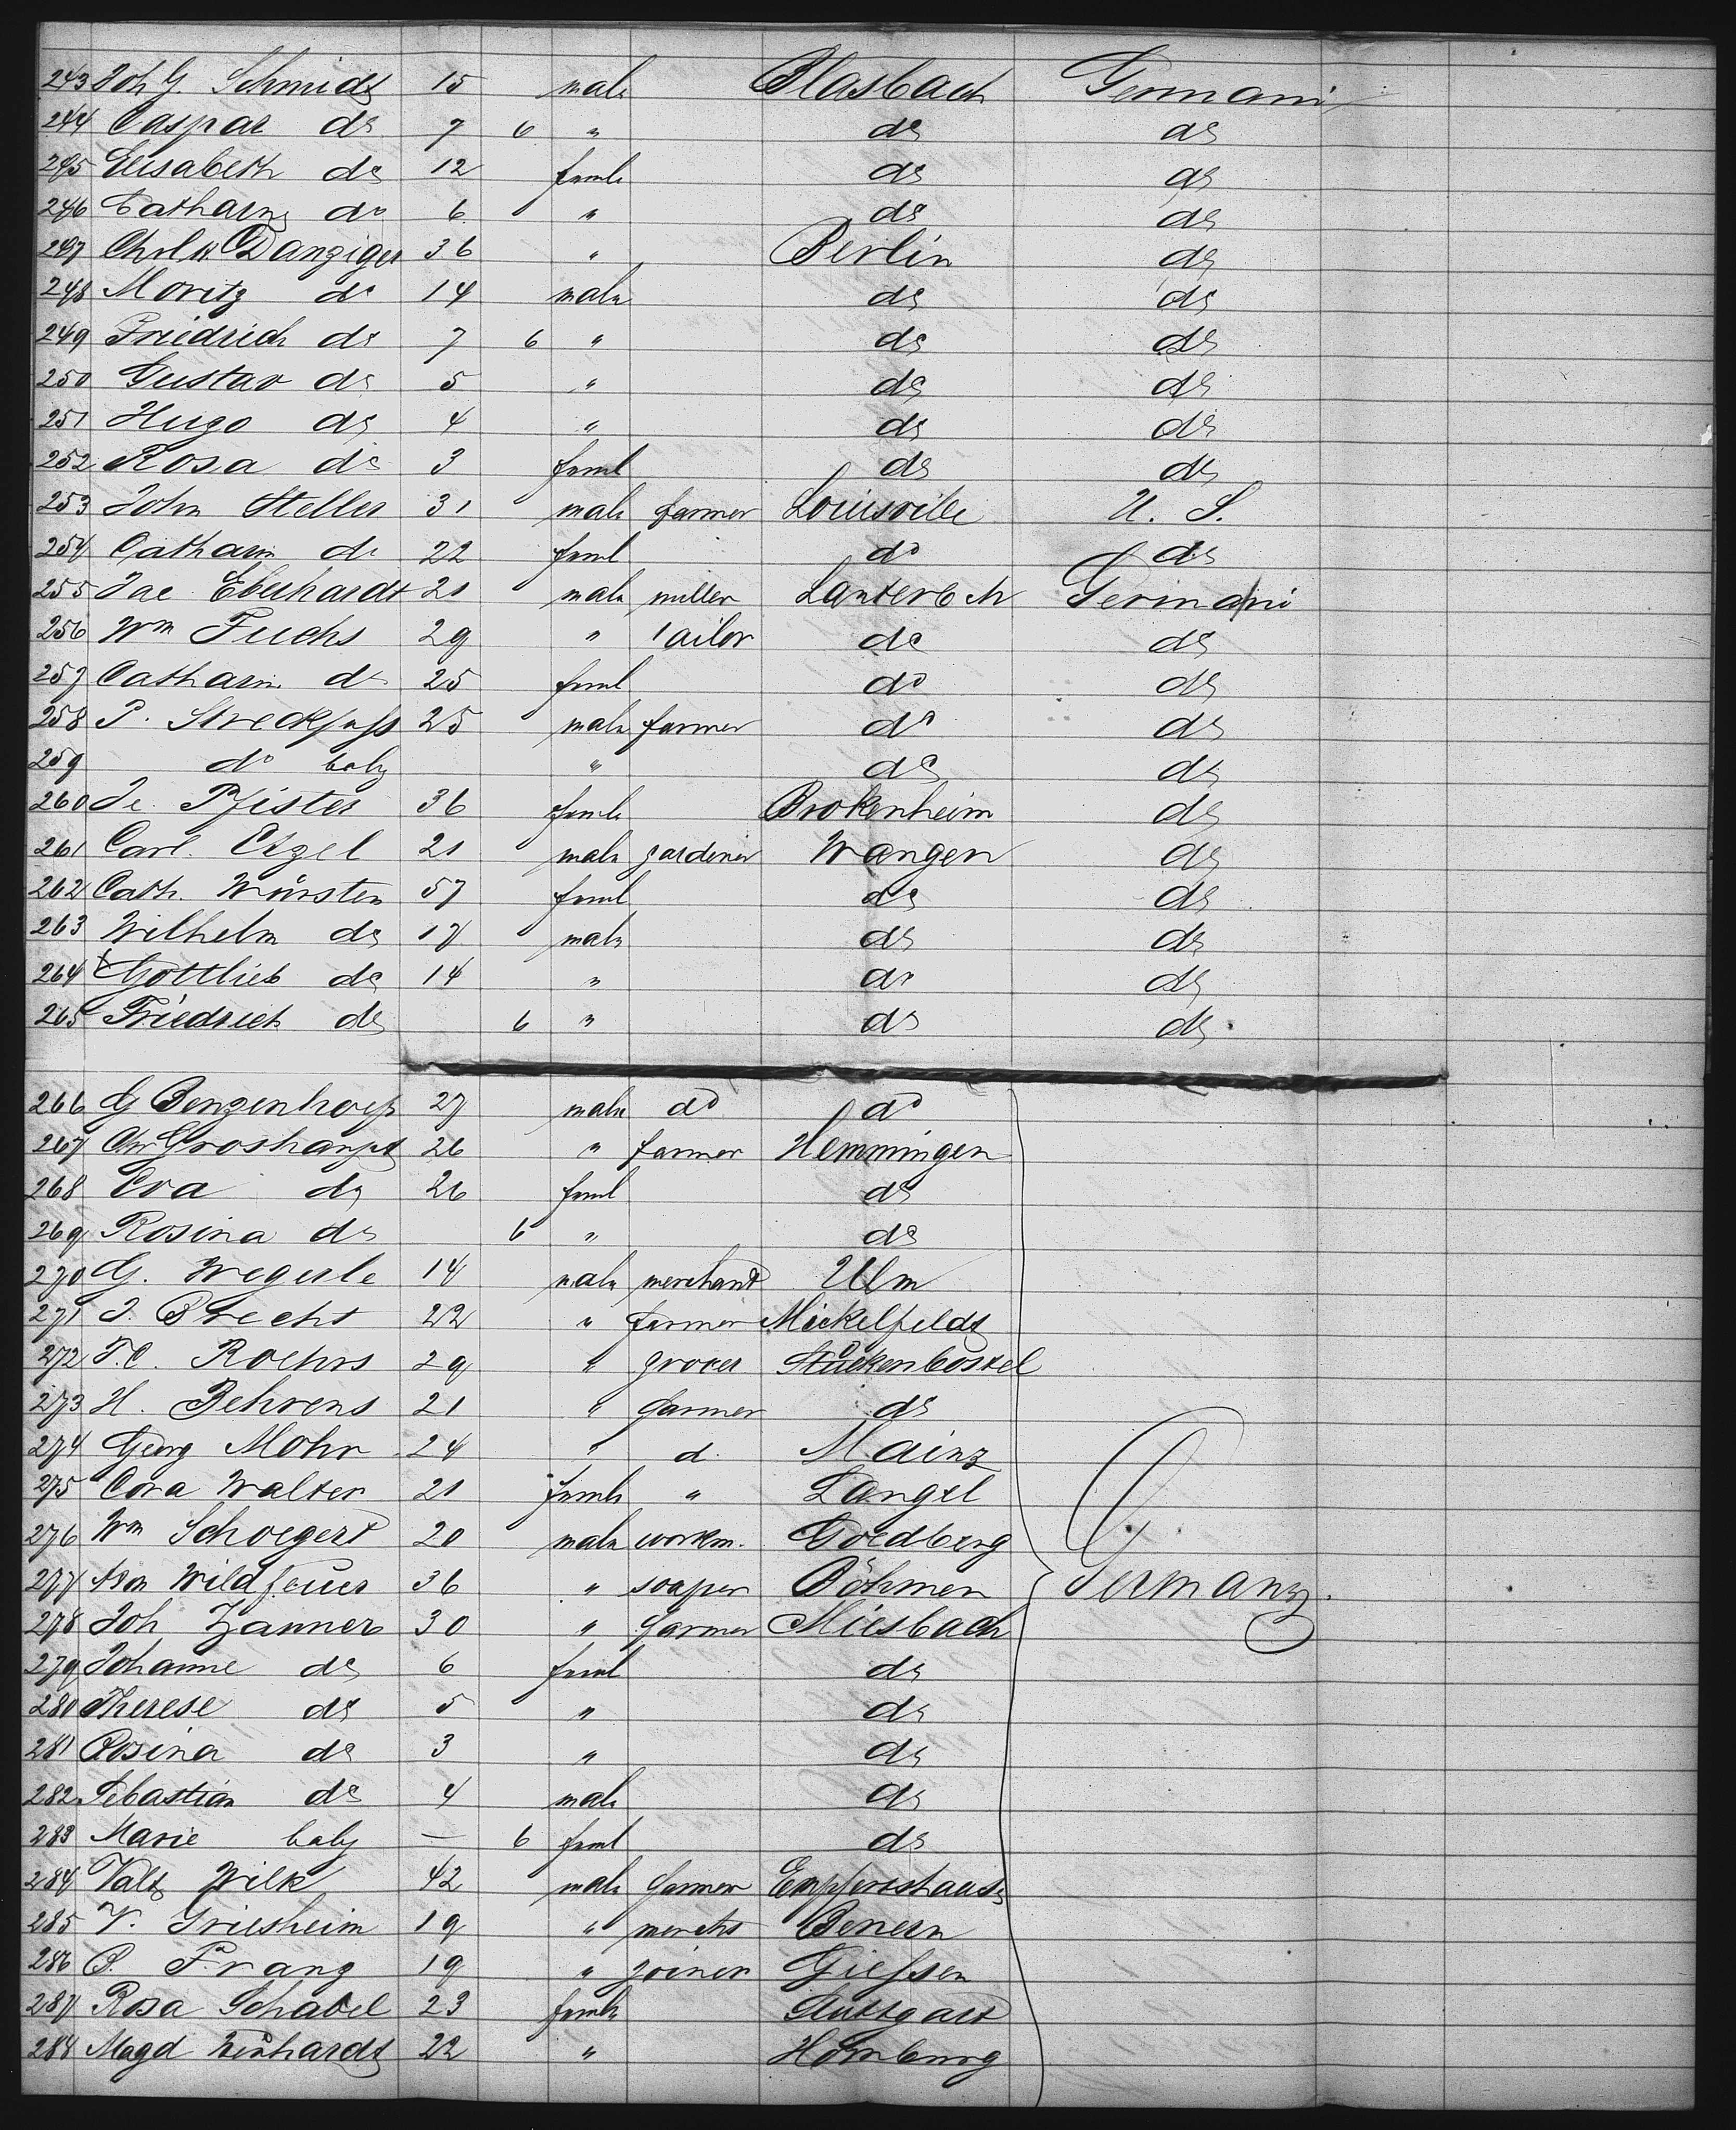 243 Joh G. Schmidt 15 male Blasbach Germani
244 Caspar do 7 6 " do do
245 Elisabeth do 12 femle do do
246 Catharin do 6 " do do
247 Danziger 36 " Berlin do
248 Moritz do 14 male do do
249 Friedrich do 7 6 " do do
250 Gustav do 5 " do do
251 Hugo do 4 " do do
252 Rosa do 3 feml do do
253 John Heller 31 male farmer Louisville U. S.
254 Catharin do 22 feml do do
255 Jac Eberhardt 21 male miller Lauterbch Germani
256 Wm Fuchs 29 " tailor do do
257 Catharin do 25 feml do do
258 P. Streckfuss 25 male farmer do do
259 do baby " do do
260 Pfister 36 femle Brokenheim do
261 Carl Etzel 21 male gardener Wangen do
262 Cath. Würsten 57 feml do do
263 Wilhelm do 17 male do do
264 Gottlieb do 14 " do do
265 Friedrich do 6 " do do
266 G Benzenhoef 27 male do do
267 Chr Groshaupt 26 " farmer Hemmingen
268 Eva do 26 feml do
269 Rosina do 6 " do
270 G. Wegerle 14 male merchant Ulm
271 J. Brecht 22 " farmer Mickelfeldt
272 Roehrs 29 " grocer Stuckenbostel
273 H. Behrens 21 " farmer do
274 Georg Mohr 24 " d. Mainz
275 Cora Walter 21 femle " Langel
276 Wm Schoegert 20 male workm. Goedberg
277 Wildfeuer 36 " soaper Böhmen Germany.
278 Joh Zanner 30 " farmer Miesbach
279 Johanne do 6 feml do
280 Therese do 5 " do
281 Rosina do 3 " do
282 Sebastian do 4 male do
283 Marie baby — 6 feml do
284 Valt Wilk 42 male farmer
285 V. Griesheim 19 " mercht
286 Franz 19 " joiner Giessen
287 Rosa Schabel 23 femle Stuttgart
284 Magd 22 " Homburg